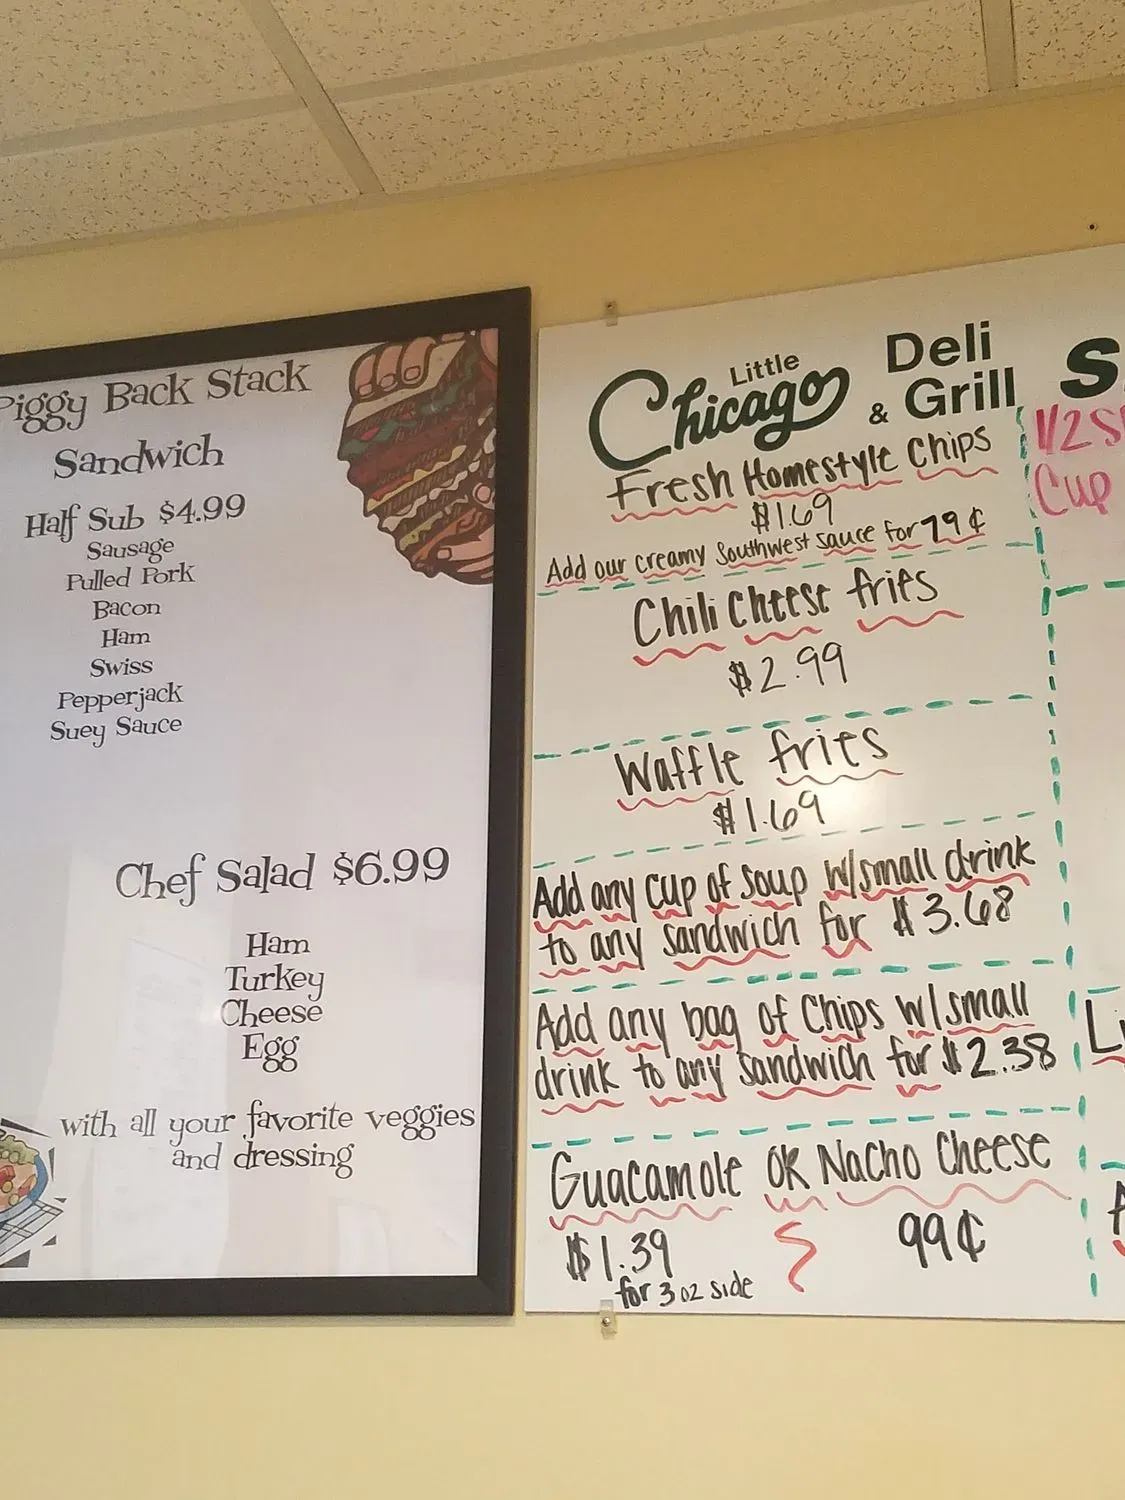 Piggy Back Stack
Sandwich
Half Sub $4.99
Sausage
Pulled Pork
Bacon
Ham
Swiss
Pepperjack
Suey Sauce
Chef Salad $6.99
Ham
Turkey
Cheese
Egg
with all your favorite veggies
and dressing
Little
Chicago
Deli
& Grill
Fresh Homestyle Chips
$1.69
Add our creamy Southwest sauce for 79¢
Chili Cheese fries
$2.99
Waffle fries
$1.69
Add any cup of soup w/small drink
to any sandwich for $3.68
Add any bag of Chips w/small
drink to any sandwich for $2.38
Guacamole OR Nacho Cheese
$1.39
for 3 oz side
99¢
1/2
Cup